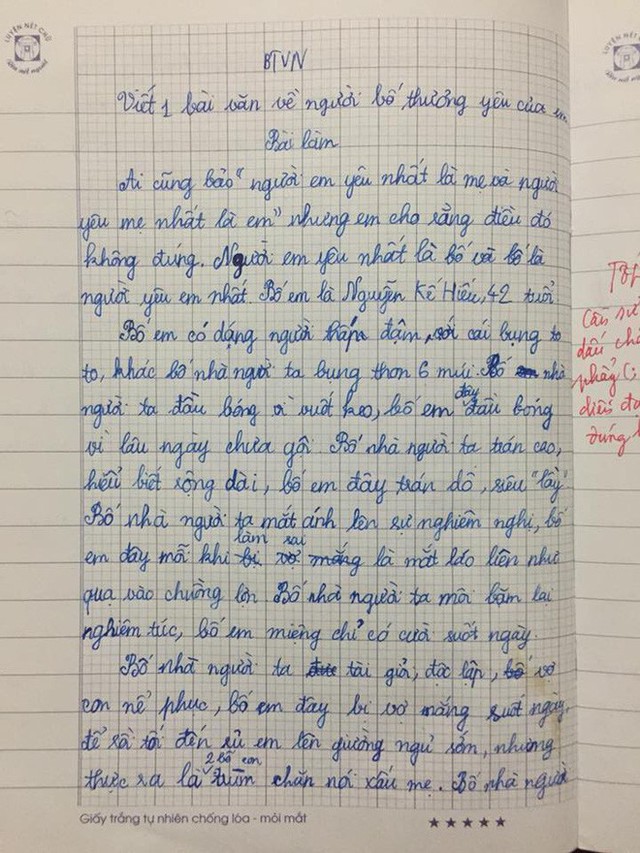 LUYỆN NÉT CHỮ
LUYỆN NÉT CHỮ
BTVN
Viết 1 bài văn về người bố thương yêu của em
Bài làm
Ai cũng bảo "người em yêu nhất là mẹ và người
yêu mẹ nhất là em" nhưng em cho rằng điều đó
không đúng. Người em yêu nhất là bố và bố là
người yêu em nhất. Bố em là Nguyễn Kế Hiếu, 42 tuổi
Bố em có dáng người thấp đậm, với cái bụng to
to, khác bố nhà người ta bụng thon 6 múi. Bố nhà
người ta đầu bóng vì vuốt keo, bố em đây đầu bóng
vì lâu ngày chưa gội. Bố nhà người ta trán cao,
hiểu biết rộng dài, bố em đây trán dô, siêu "lầy"
Bố nhà người ta mắt ánh lên sự nghiêm nghị, bố
em đây mỗi khi làm sai bị vợ mắng là mắt láo liên như
quạ vào chuồng lợn Bố nhà người ta môi bặm lại
nghiêm túc, bố em miệng chỉ có cười suốt ngày.
Bố nhà người ta tài giỏi, độc lập, vợ
con nể phục, bố em đây bị vợ mắng suốt ngày,
để rồi tối đến rủ em lên giường ngủ sớm, nhưng
thực ra là 2 bố con trùm chăn nói xấu mẹ. Bố nhà người
Giấy trắng tự nhiên chống lóa - mỏi mắt
dấu
phẩy (,
đúng